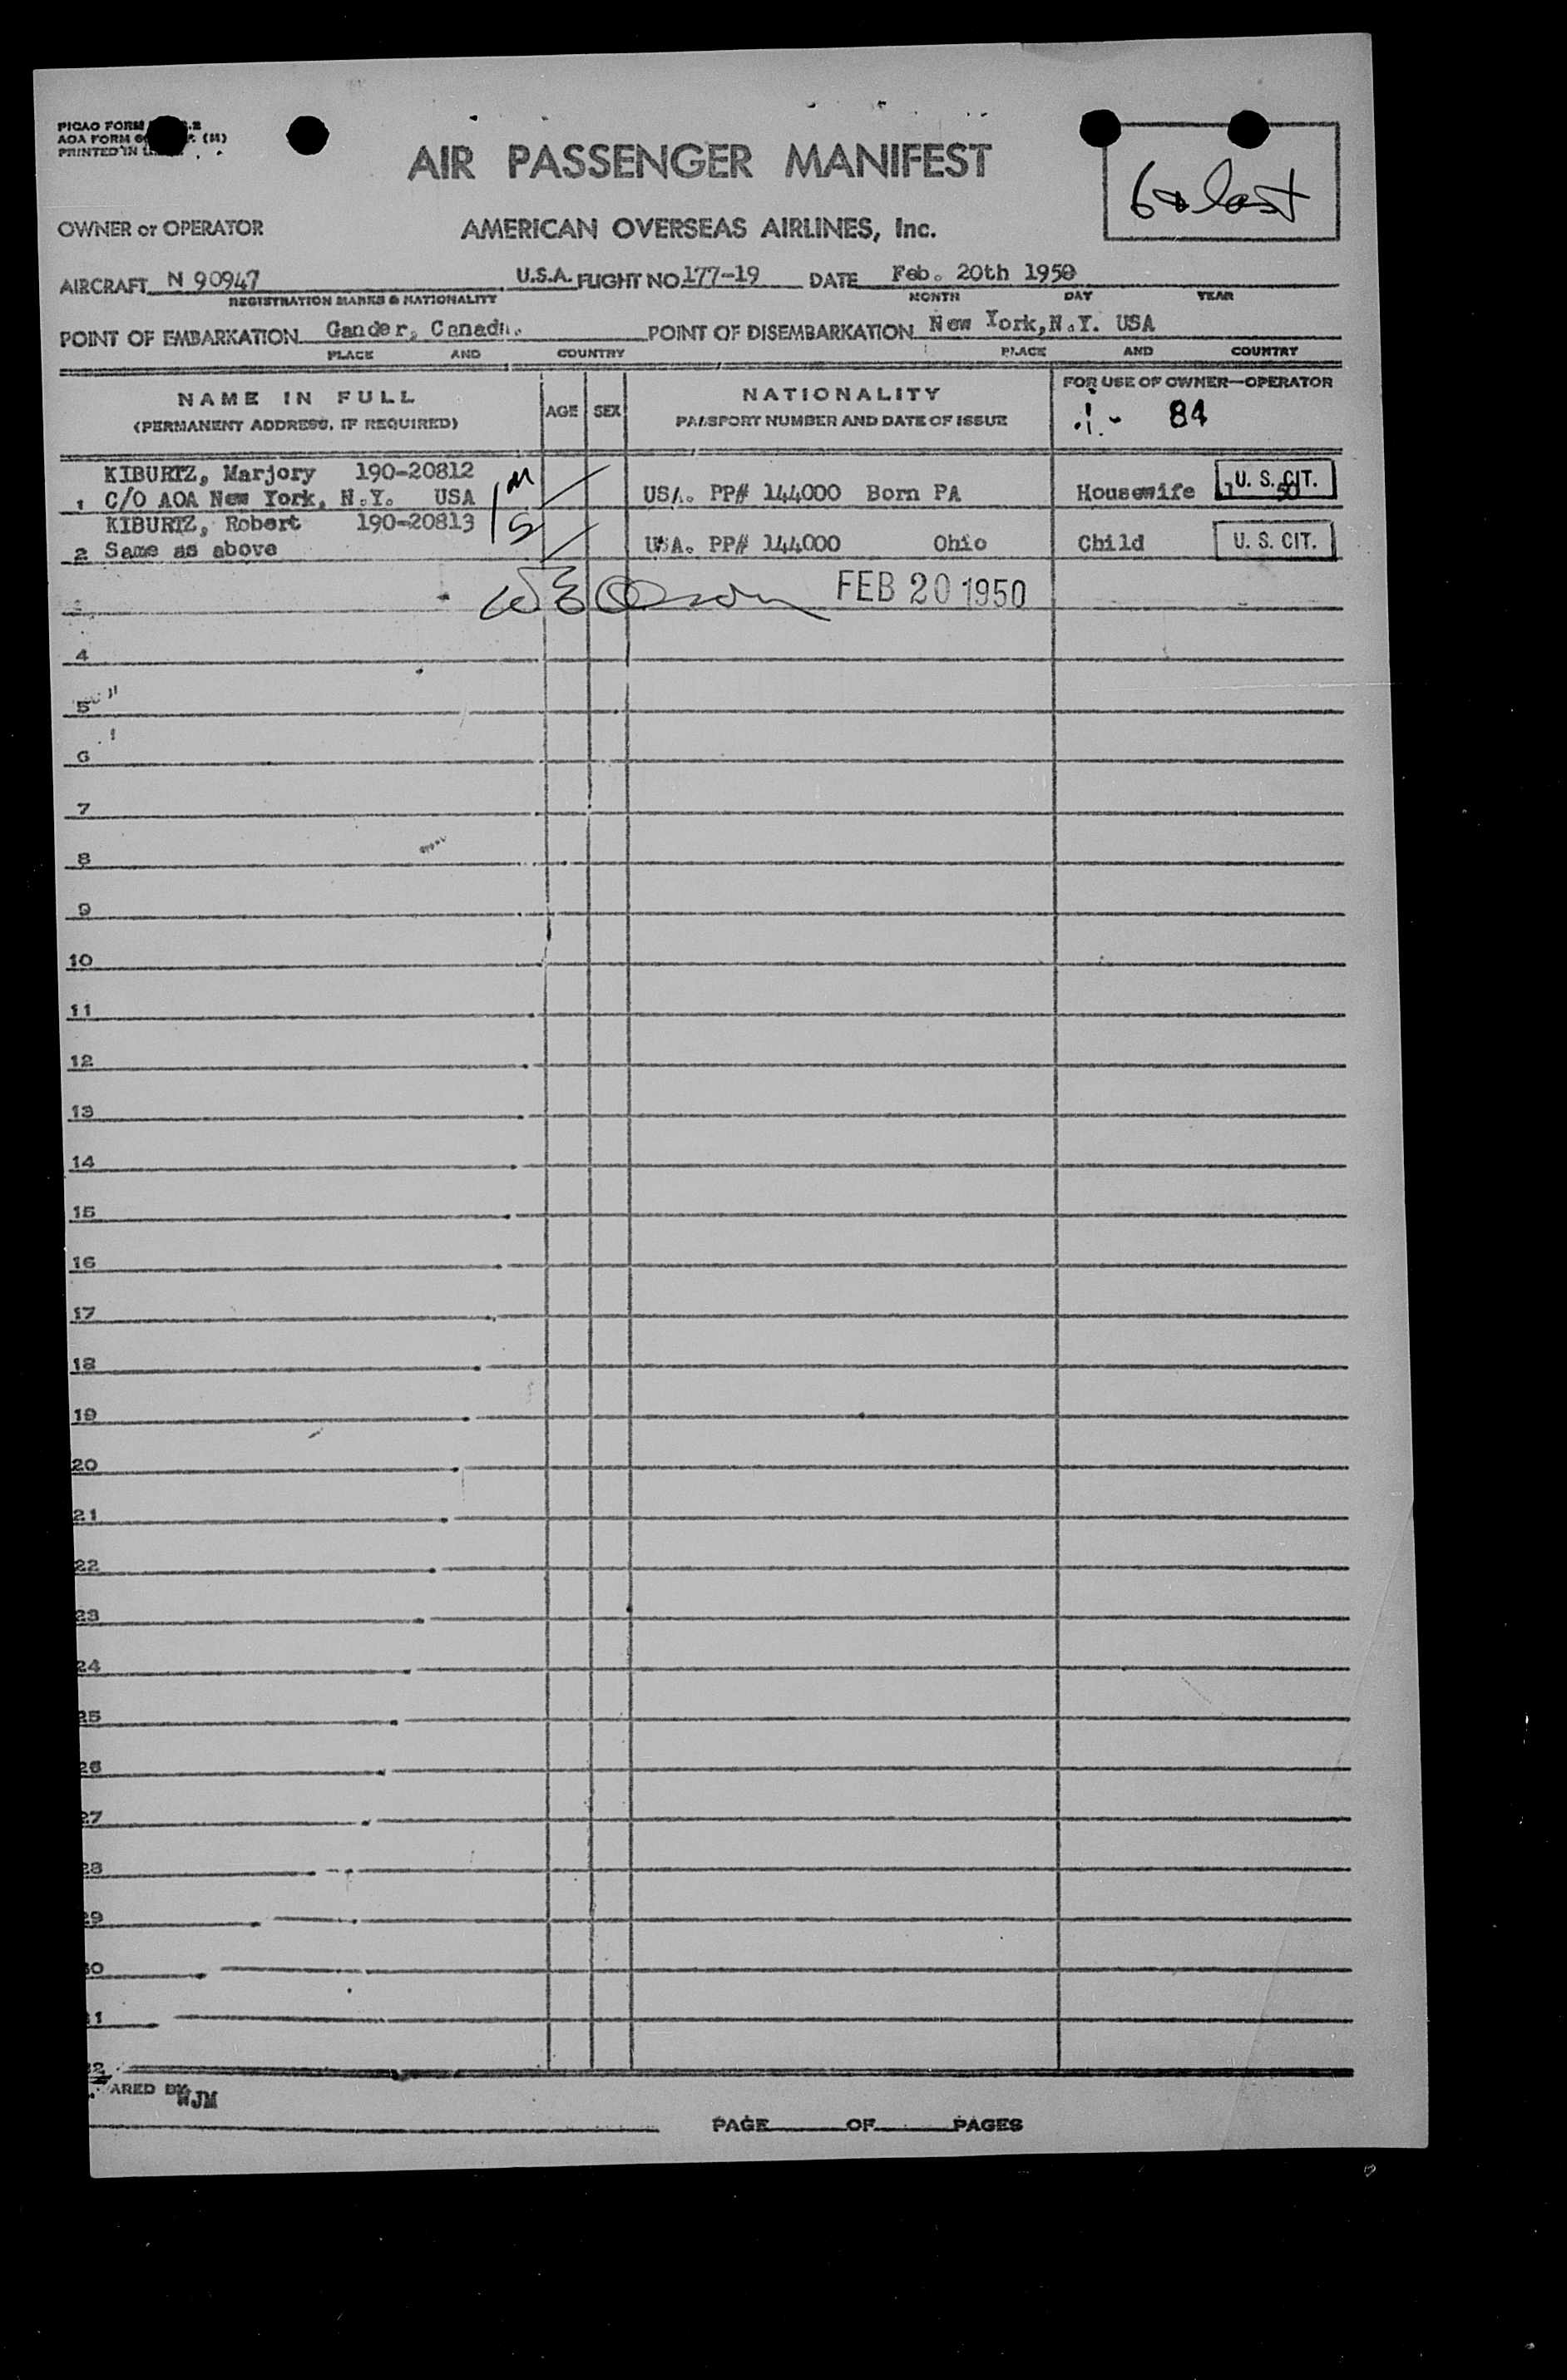 PICAO FORM
AOA FORM 6 (M)
PRINTED IN
AIR PASSENGER MANIFEST
6 & last
OWNER or OPERATOR AMERICAN OVERSEAS AIRLINES, Inc.
AIRCRAFT N 90947 U.S.A. FLIGHT NO 177-19 DATE Feb. 20th 1950
REGISTRATION MARKS & NATIONALITY MONTH DAY YEAR
POINT OF EMBARKATION Gander, Canada. POINT OF DISEMBARKATION New York, N.Y. USA
PLACE AND COUNTRY PLACE AND COUNTRY
NAME IN FULL
(PERMANENT ADDRESS, IF REQUIRED)
AGE SEX
NATIONALITY
PASSPORT NUMBER AND DATE OF ISSUE
FOR USE OF OWNER—OPERATOR
84
KIBURTZ, Marjory 190-20812 M
1 C/O AOA New York, N.Y. USA USA. PP# 144000 Born PA Housewife U. S. CIT.
KIBURTZ, Robert 190-20813 S
2 Same as above USA. PP# 144000 Ohio Child U. S. CIT.
FEB 20 1950
4
5
6
7
8
9
10
11
12
13
14
15
16
17
18
19
20
21
22
23
24
25
26
27
28
29
30
31
32
ARED BY WJM
PAGE OF PAGES